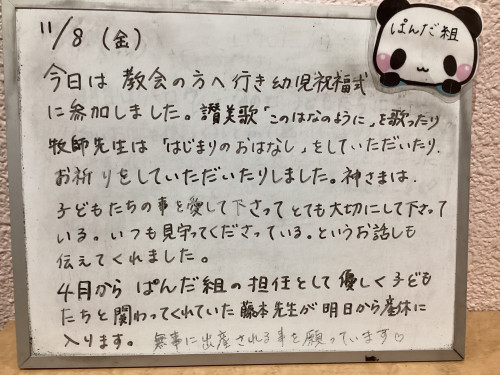 ぱんだ組
11/8 (金)
今日は教会の方へ行き幼児祝福式
に参加しました。讃美歌「このはなのように」を歌ったり
牧師先生は「はじまりのおはなし」をしていただいたり、
お祈りをしていただいたりしました。神さまは、
子どもたちの事を愛して下さって とても大切にして下さって
いる。いつも見守ってくださっている。というお話しも
伝えてくれました。
4月から ぱんだ組の担任として 優しく子ども
たちと関わってくれていた 藤本先生が 明日から産休に
入ります。 無事に出産される事を願っています♡